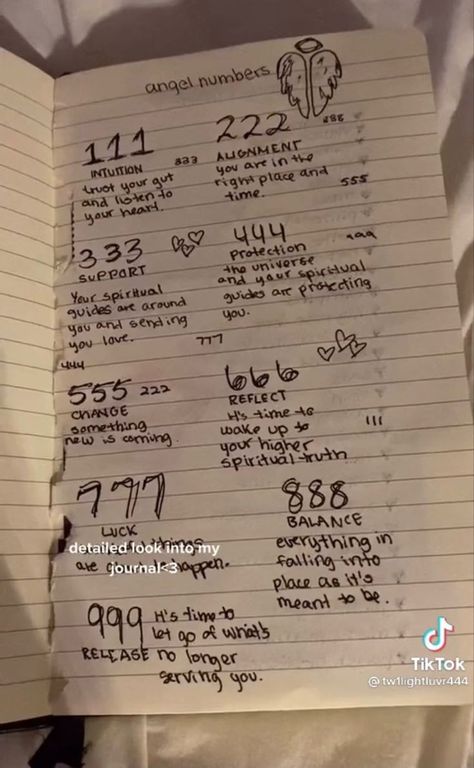 angel numbers
111
INTUITION
trust your gut
and listen to
your heart.
333
222
888
ALIGNMENT
you are in the
right place and
time.
555
333
SUPPORT
Your spiritual
guides are around
you and sending
you love.
777
444
444
Protection
the universe
and your spiritual
guides are protecting
you.
999
555
222
CHANGE
something
new is coming.
666
REFLECT
It's time to
wake up to
your higher
spiritual truth
111
777
LUCK
things
are happen.
detailed look into my
journal<3
888
BALANCE
everything in
falling into
place as it's
meant to be.
999
RELEASE
It's time to
let go of what's
no longer
serving you.
TikTok
@tw1lightluvr444